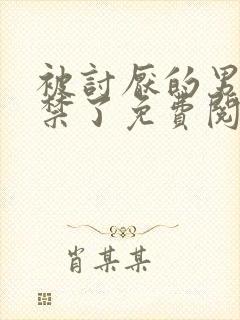 被討厭的男
禁了免費閱
肖某某